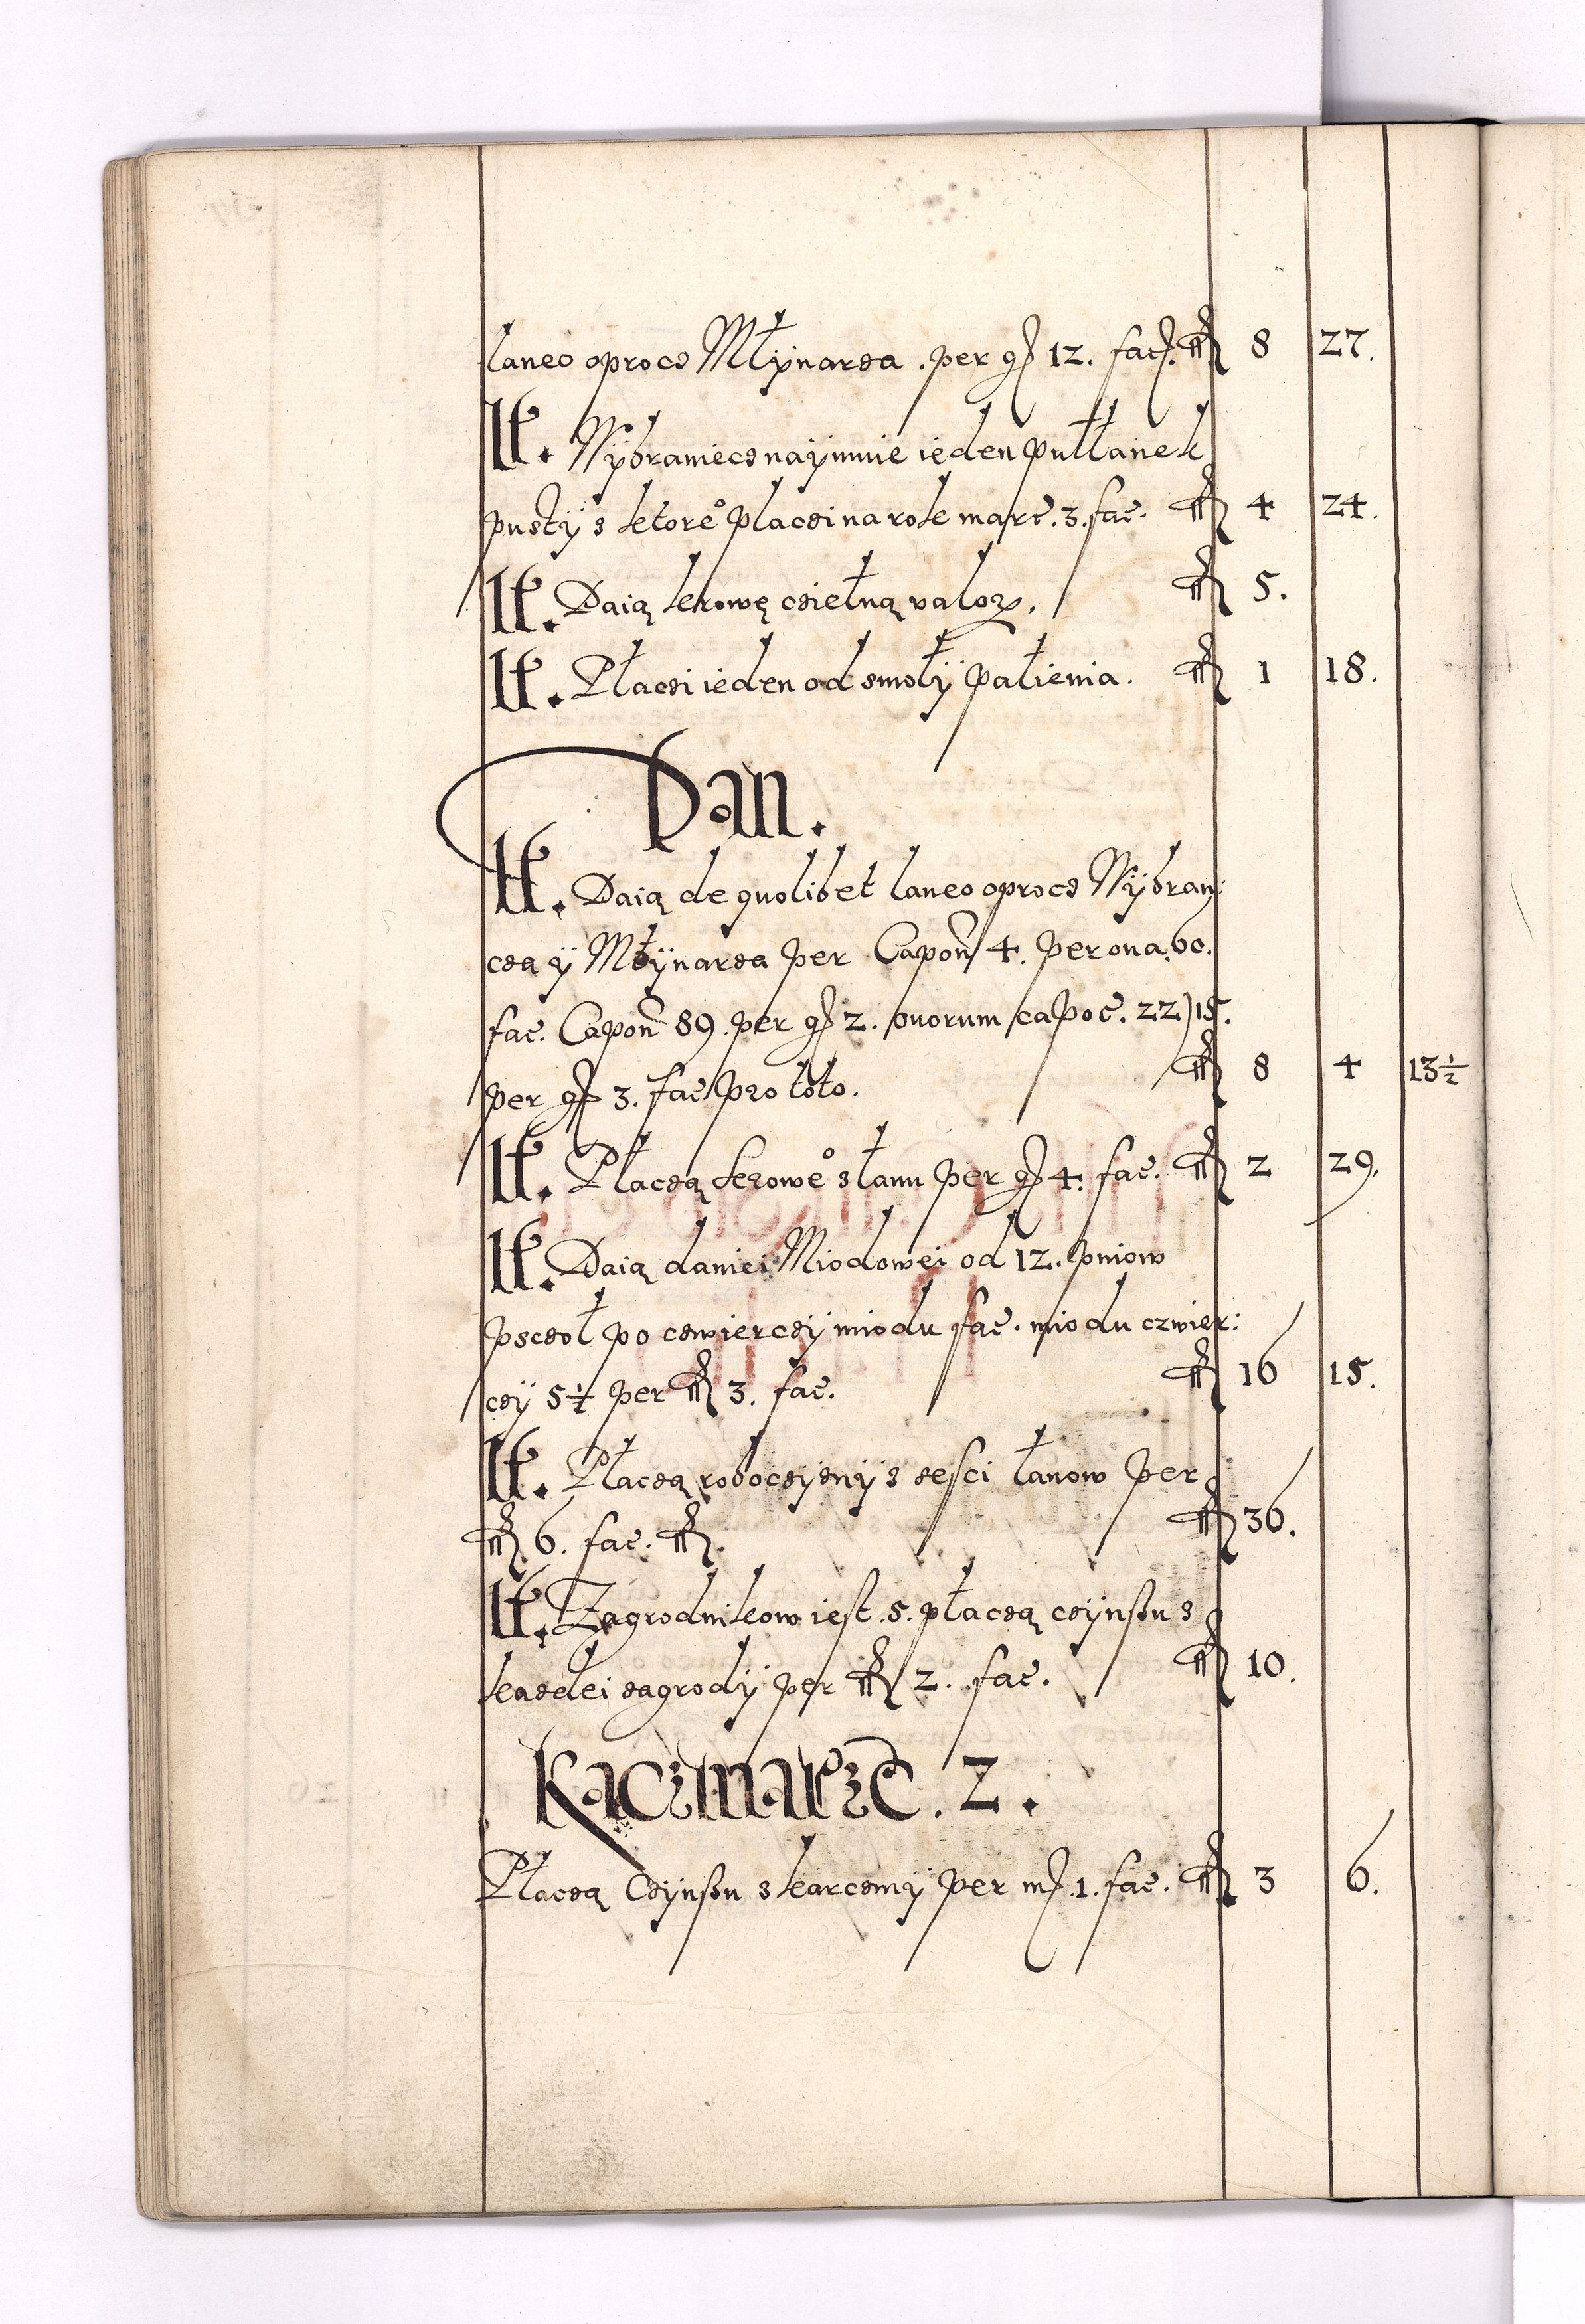 laneo oprocz Młÿnarza . per gſ 12. facſ. fl 8 27.
It. Wÿbraniecz naÿmuie ieden pułłanek
pustÿ z ktore° płaczi na rok marc. 3. fac. fl 4 24.
It. Daią krowę czielną valor. fl 5.
It. Płaczi ieden od smołÿ palienia. fl 1 18.
Dan.
It. Daią de quolibet laneo oprocz Wÿbran:
cza ÿ Młÿnarza per Capon 4. per ova 60.
fac. Capon 89. per gſ 2. ovorum capoc. 22) 15.
per gſ 3. fac pro toto. fl 8 4 13½
It. Płaczą krowe° z łanu per gſ 4. fac. fl 2 29.
It. Daią daniei Miodowei od 12. pniow
psczoł po czwierczÿ miodu fac. miodu czwier:
czÿ 5½ per fl 3. fac. fl 16 15.
It. Płaczą roboczÿznÿ z seſci łanow per
fl 6. fac. fl. fl 36.
It. Zagrodnikow ieſt .5. płaczą czÿnſzu z
kazdei zagrodÿ per fl 2. fac. fl 10.
Kaczmarzc . 2 .
Płaczą Czÿnſzu z karczmÿ per mſ .1. fac. fl 3 6.